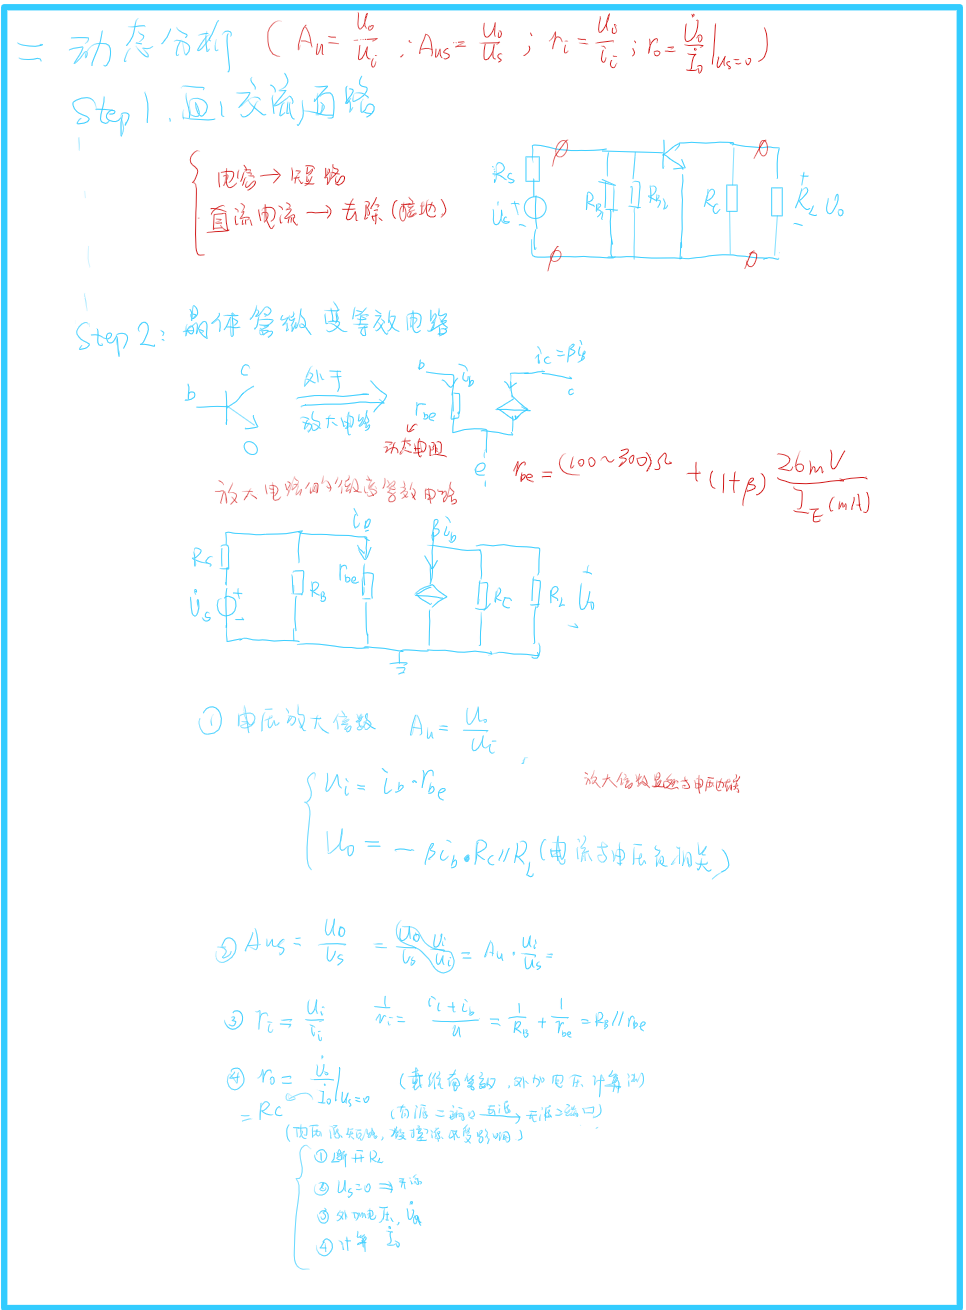 二 动态分析 ( Au = Uo/Ui ; Aus = Uo/Us ; ri = Ui/ii ; ro = U̇o/İo |Us=0 )
Step 1. 画 交流通路
电容 → 短路
直流电流 → 去除 (接地)
Rs U̇s + - RB RB2 Rc + RL - Uo
Step 2: 晶体管微变等效电路
b c 处于 放大电路 b ib rbe ic = βib c e
动态电阻
rbe = (100~300)Ω + (1+β) 26mV / IE (mA)
放大电路的微变等效电路
Rs U̇s + - RB rbe βib Rc RL + U̇o -
① 电压放大倍数 Au = Uo/Ui
Ui = ib · rbe
放大倍数显然与电压
Uo = - βib · Rc // RL (电流与电压负相关)
② Aus = Uo/Us = Uo/Us Ui/Ui = Au · Ui/Us =
③ ri = Ui/ii 1/ri = (ii + ib)/u = 1/RB + 1/rbe = RB // rbe
④ ro = U̇o/İo |Us=0 (戴维南等效, 外加电压计算法)
= Rc (有源二端口 → 无源二端口)
① 断开RL
② Us=0 ⇒
③ 外加电压, U̇o
④ 计算 İo